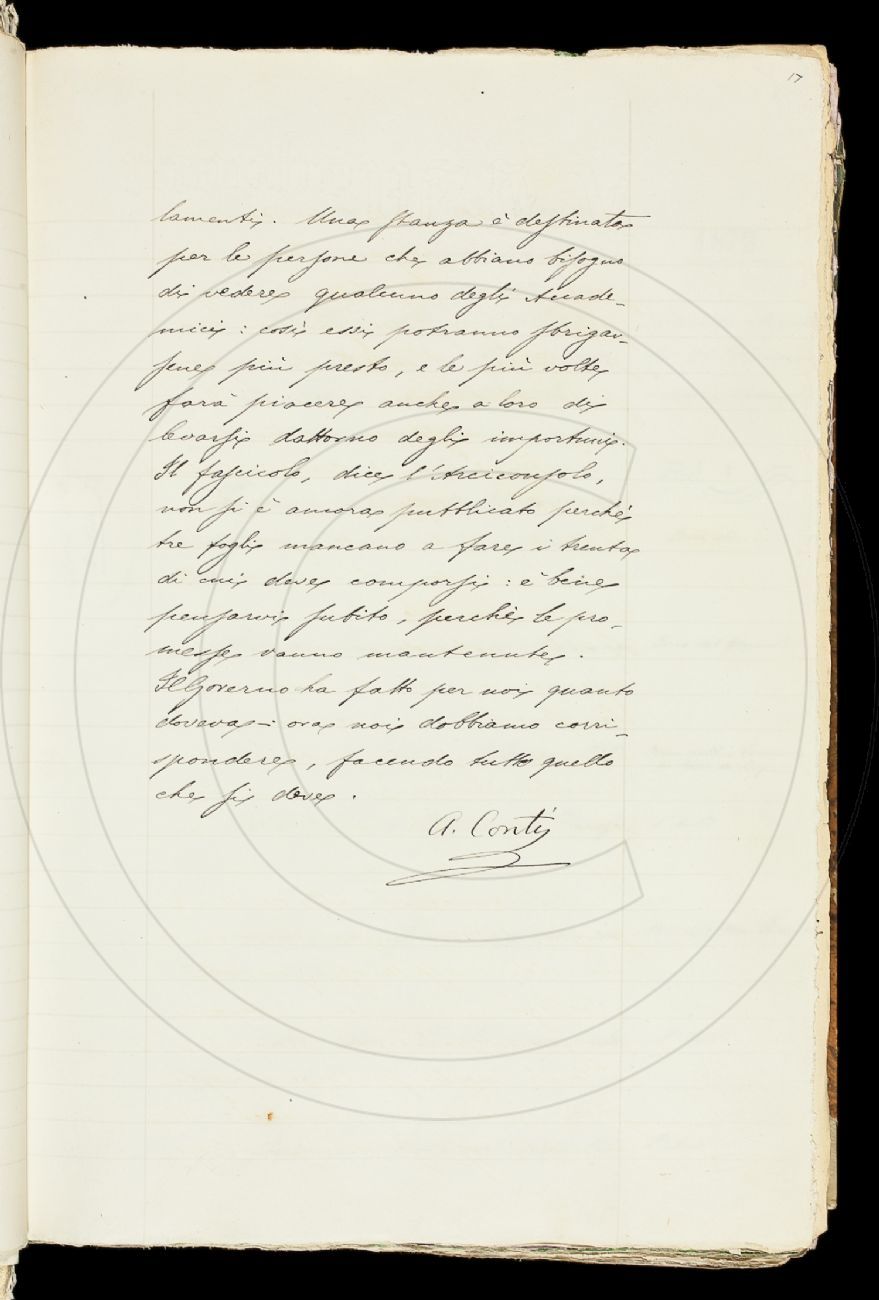 17
lamenti. Una stanza è destinata
per le persone che abbiano bisogno
di vedere qualcuno degli Accade-
mici: così essi potranno sbrigar-
sene più presto, e le più volte
farà piacere anche a loro di
levarsi dattorno degli importuni.
Il fascicolo, dice l'Arciconsolo,
non si è ancora pubblicato perché
tre fogli mancano a fare i trenta
di cui deve comporsi: è bene
pensarvi subito, perchè le pro-
messe vanno mantenute.
Il Governo ha fatto per noi quanto
doveva: ora noi dobbiamo corri-
spondere, facendo tutto quello
che si deve.
A. Conti